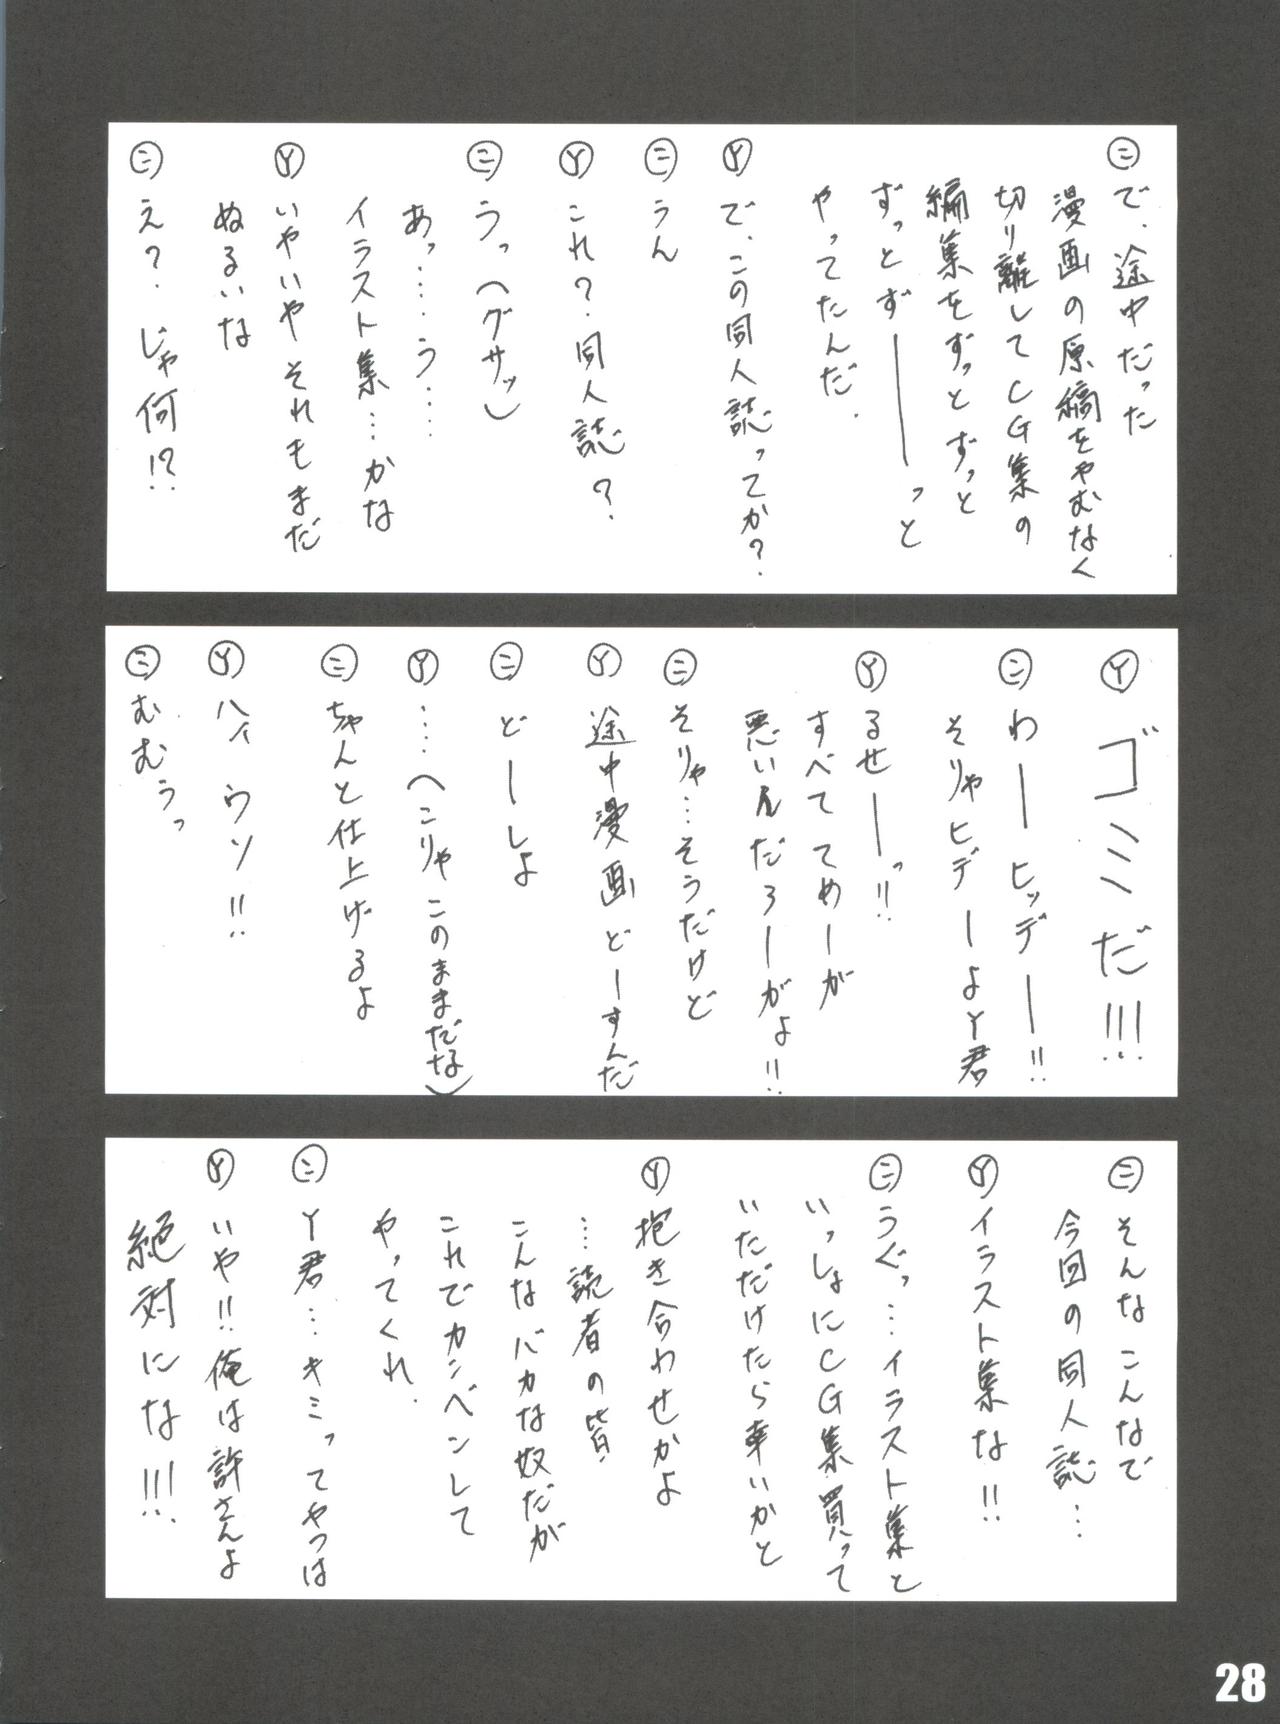 ㋥ で、途中だった
漫画の原稿をやむなく
切り離してCG集の
編集をずっとずっと
ずっとずーーーっと
やってたんだ.
Ⓨ で、この同人誌ってか?
㋥ うん
Ⓨ これ?同人誌?
㋥ うっ(グサッ)
あっ……う……
イラスト集…かな
Ⓨ いやいやそれもまだ
ぬるいな
㋥ え?じゃ何!?
Ⓨ ゴミだ!!!
㋥ わーヒッデー!!
そりゃヒデーよY君
Ⓨ るせーーっ!!
すべててめーが
悪いんだろーがよ!!
㋥ そりゃ…そうだけど
Ⓨ 途中漫画どーすんだ
㋥ どーしよ
Ⓨ ……(こりゃこのままだな)
㋥ ちゃんと仕上げるよ
Ⓨ ハイ ウソ!!
㋥ むむぅっ
㋥ そんなこんなで
今回の同人誌…
Ⓨ イラスト集な!!
㋥ うぐっ…イラスト集と
いっしょにCG集買って
いただけたら幸いかと
Ⓨ 抱き合わせかよ
……読者の皆、
こんなバカな奴だが
これでカンベンして
やってくれ.
㋥ Y君…キミってやつは
Ⓨ いや!!俺は許さんよ
絶対にな!!!
28